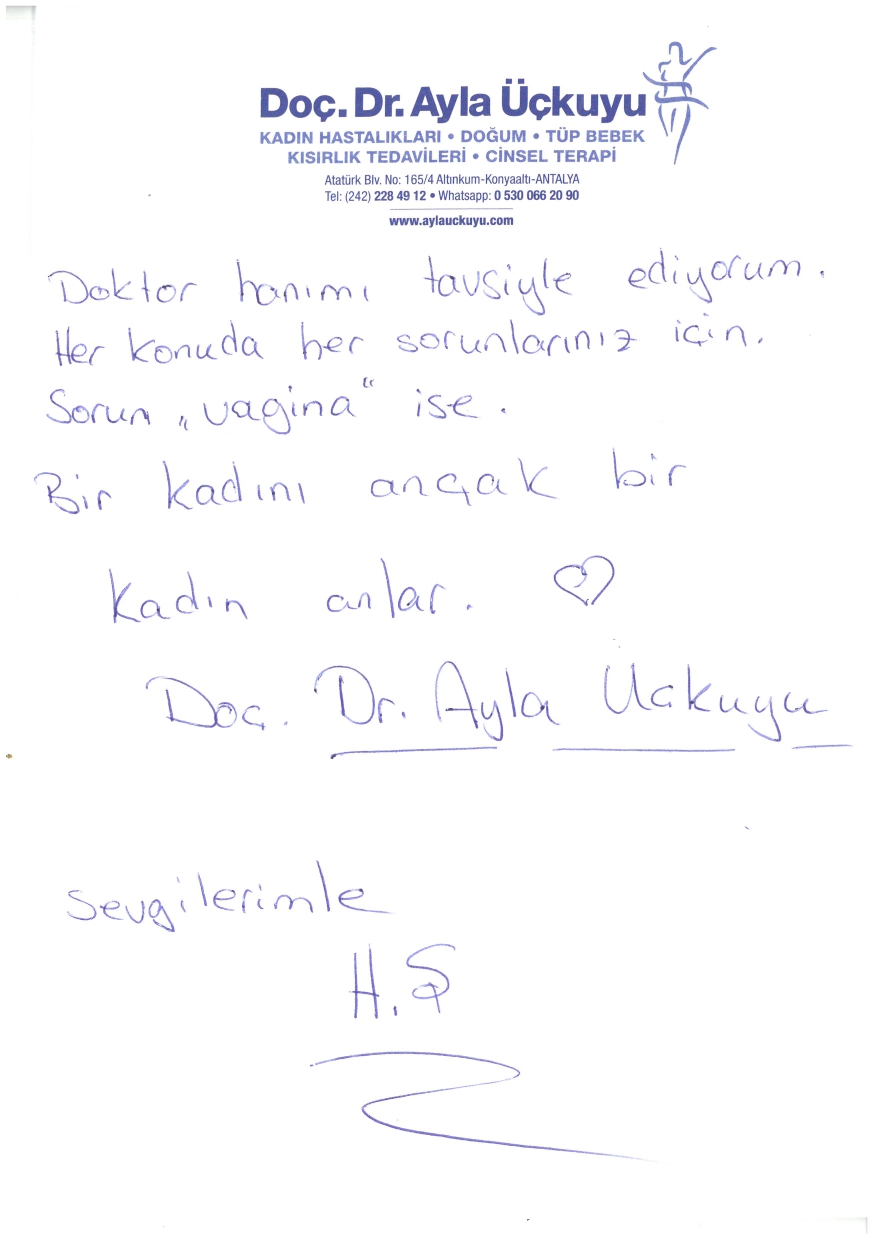 Doç. Dr. Ayla Üçkuyu
KADIN HASTALIKLARI • DOĞUM • TÜP BEBEK
KISIRLIK TEDAVİLERİ • CİNSEL TERAPİ
Atatürk Blv. No: 165/4 Altınkum-Konyaaltı-ANTALYA
Tel: (242) 228 49 12 • Whatsapp: 0 530 066 20 90
www.aylauckuyu.com
Doktor hanımı tavsiyle ediyorum.
Her konuda her sorunlarınız için.
Sorun „vagina“ ise.
Bir kadını ançak bir
kadın anlar. ♡
Doç. Dr. Ayla Üçkuyu
Sevgilerimle
H.Ş